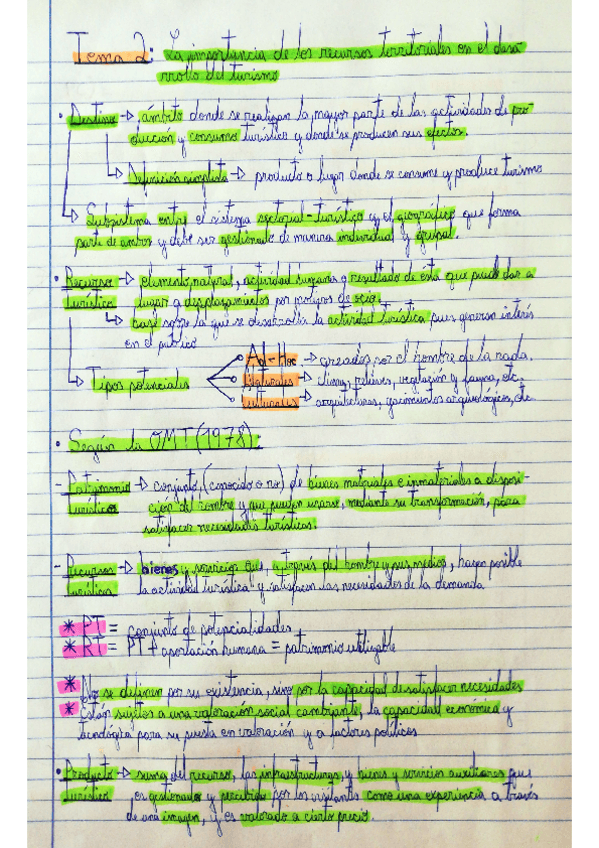 Tema 2: La importancia de los recursos territoriales en el desa-
rrollo del turismo
• Destino → ámbito donde se realizan la mayor parte de las actividades de pro-
ducción y consumo turístico y donde se producen sus efectos.
↳ Definición simplista → producto o lugar donde se consume y produce turismo
↳ Subsistema entre el sistema sectorial-turístico y el geográfico que forma
parte de ambos y debe ser gestionado de manera individual y grupal.
• Recurso → elemento natural, actividad humana o resultado de esta que puede dar a
turístico lugar a desplazamientos por motivos de ocio.
↳ base sobre la que se desarrolla la actividad turística pues generan interés
en el público
↳ Tipos potenciales
Ad-Hoc. → creados por el hombre de la nada.
Naturales → clima, relieves, vegetación y fauna, etc.
culturales → arquitecturas, yacimientos arqueológicos, etc.
• Según la OMT (1978):
- Patrimonio → conjunto (conocido o no) de bienes materiales e inmateriales a disposi-
turístico ción del hombre y que pueden usarse, mediante su transformación, para
satisfacer necesidades turísticas.
- Recursos → bienes y servicios que, a través del hombre y sus medios, hacen posible
turísticos la actividad turística y satisfacen las necesidades de la demanda
* PT = conjunto de potencialidades
* RT = PT + aportación humana = patrimonio utilizable
* No se definen por su existencia, sino por la capacidad de satisfacer necesidades
* Están sujetos a una valoración social cambiante, la capacidad económica y
tecnológica para su puesta en valoración y a factores políticos
• Producto → suma del recurso, las infraestructuras, y bienes y servicios auxiliares que
turístico es gestionado y percibido por los visitantes como una experiencia a través
de una imagen, y es valorado a cierto precio.